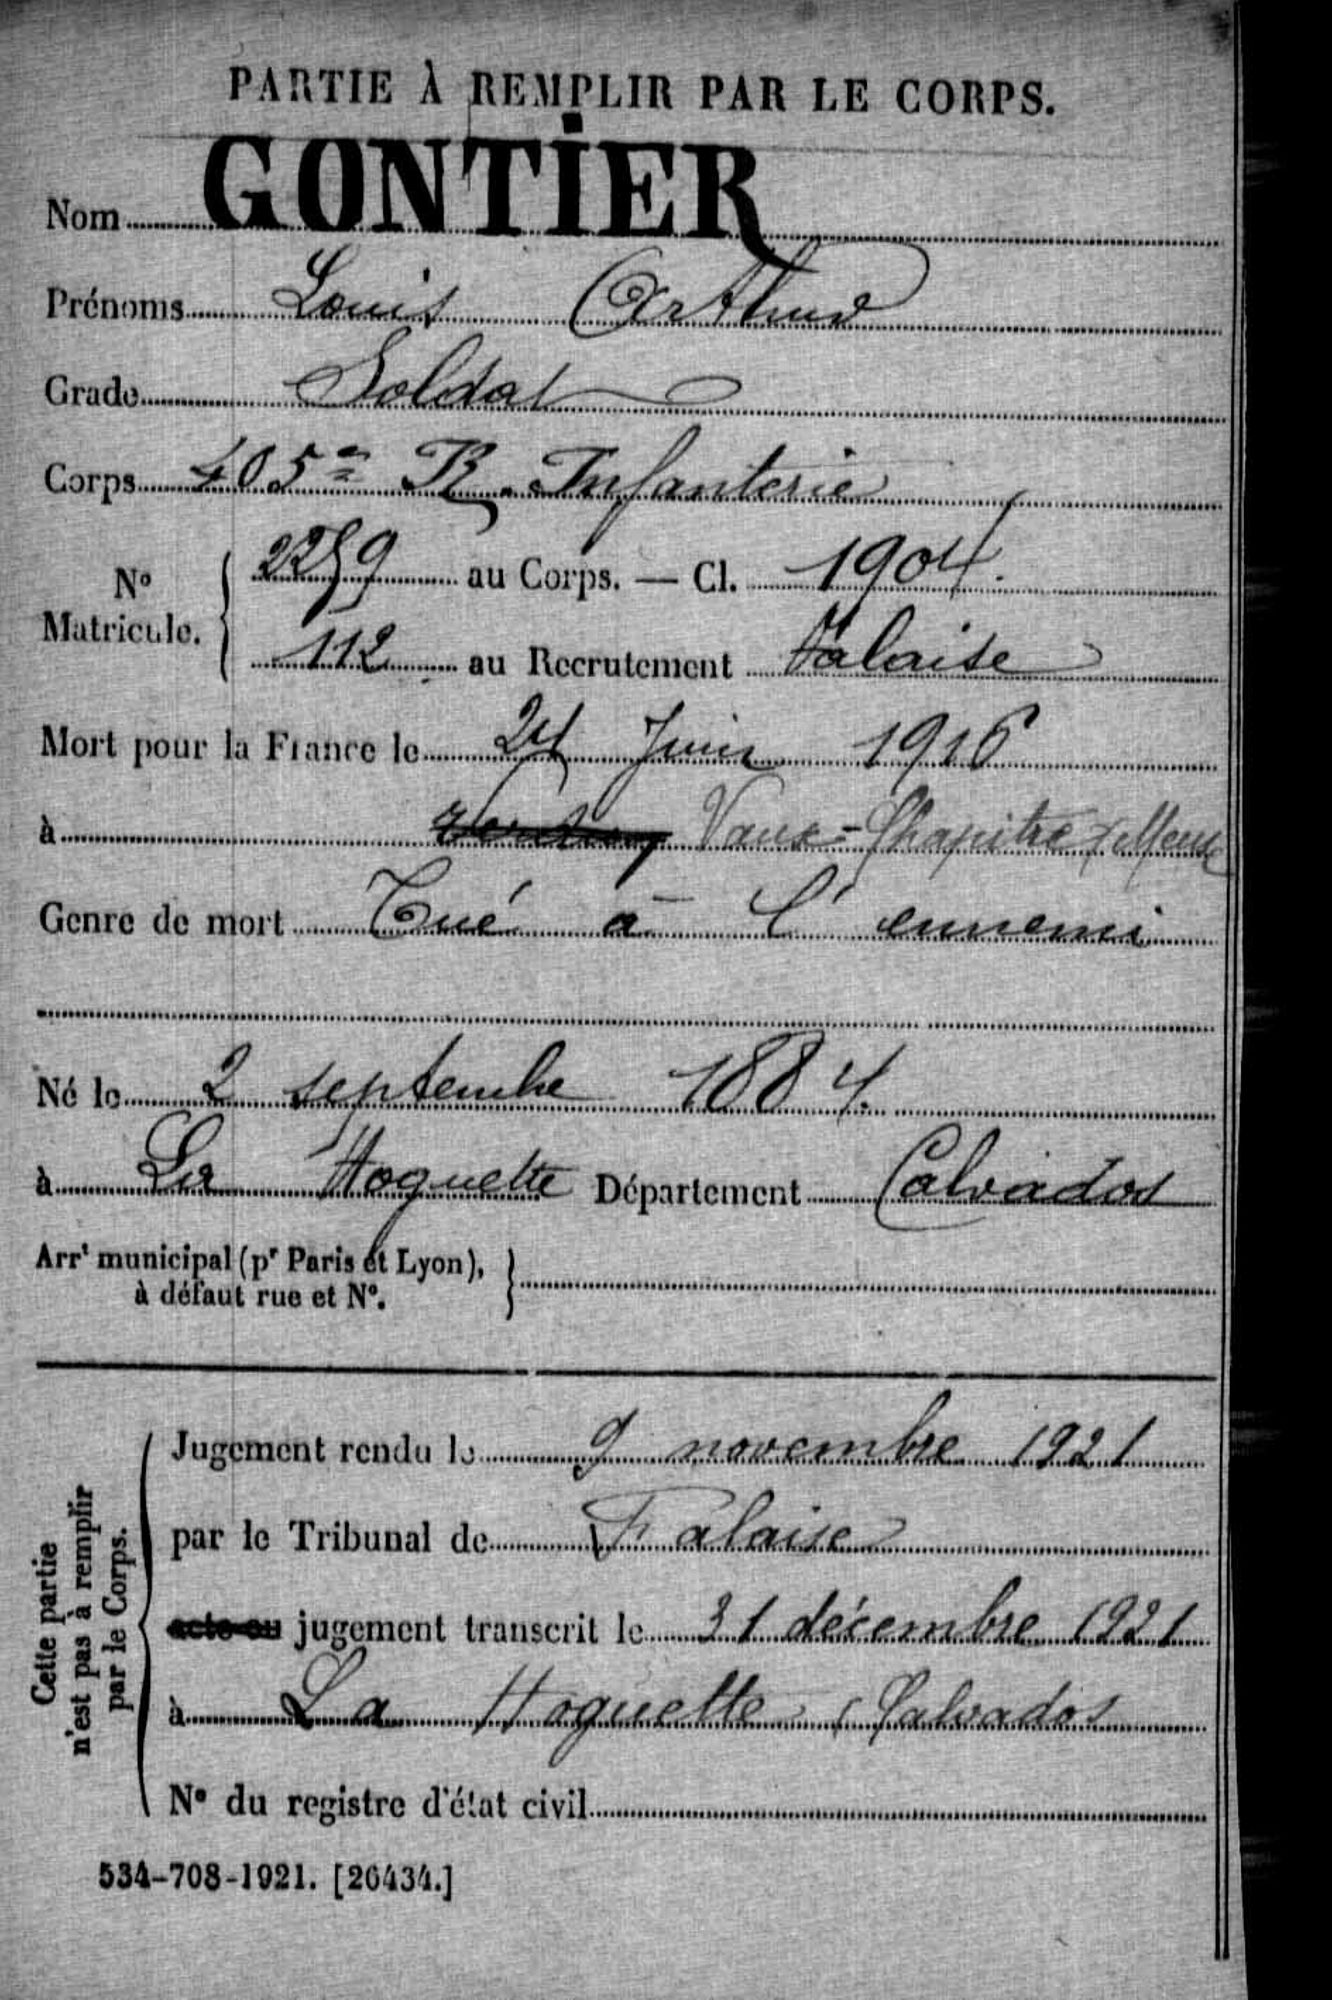 PARTIE À REMPLIR PAR LE CORPS.
Nom GONTIER
Prénoms Louis Arthur
Grade Soldat
Corps 405e R. Infanterie
N° Matricule. 2259 au Corps. — Cl. 1904.
112 au Recrutement Falaise
Mort pour la France le 24 Juin 1916
à Vaux-Chapitre (Meuse
Genre de mort Tué à l'ennemi
Né le 2 septembre 1884.
à La Hoguette Département Calvados
Arrt municipal (pr Paris et Lyon),
à défaut rue et N°.
Cette partie
n'est pas à remplir
par le Corps.
Jugement rendu le 9 novembre 1921
par le Tribunal de Falaise
acte ou jugement transcrit le 31 décembre 1921
à La Hoguette (Calvados
N° du registre d'état civil
534-708-1921. [26434.]